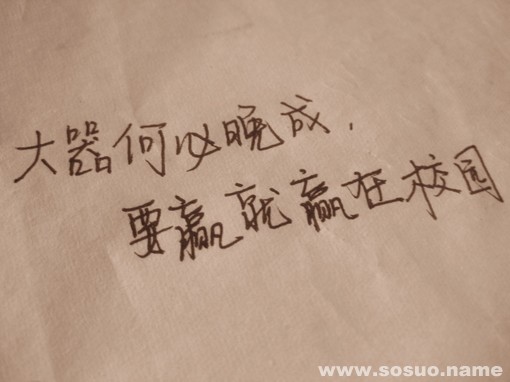 大器何必晚成，
要赢就赢在校园
www.sosuo.name